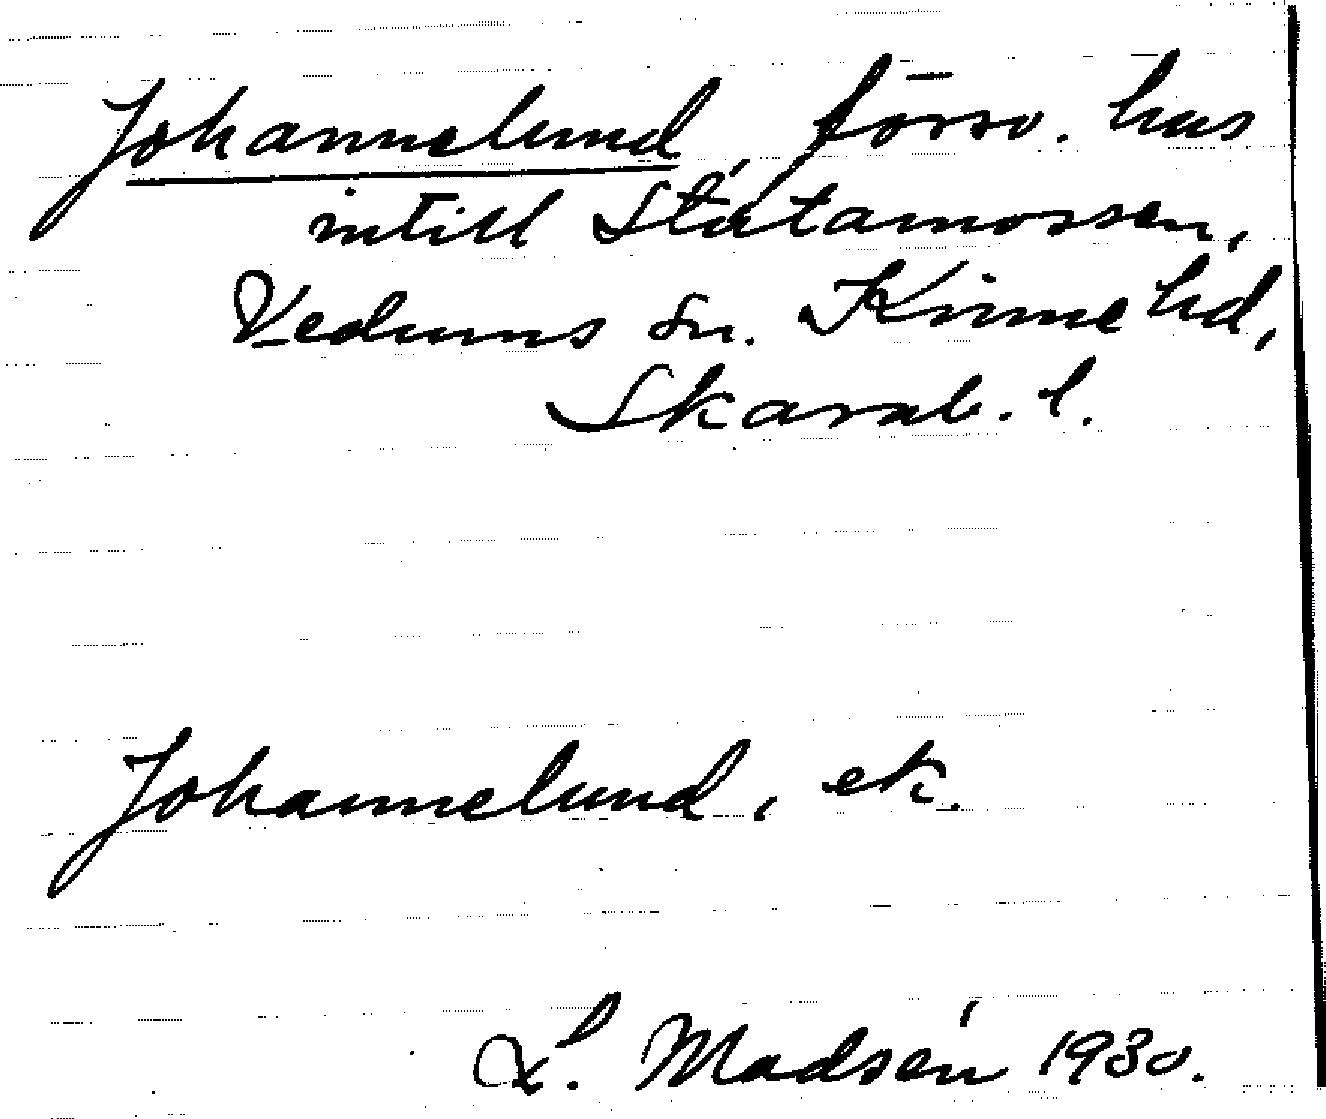 Johannelund, försv. hus
intill Slåtamossen,
Vedums sn. Kinne hd,
Skarab. l.
Johannelund, ek.
Madsén 1930.